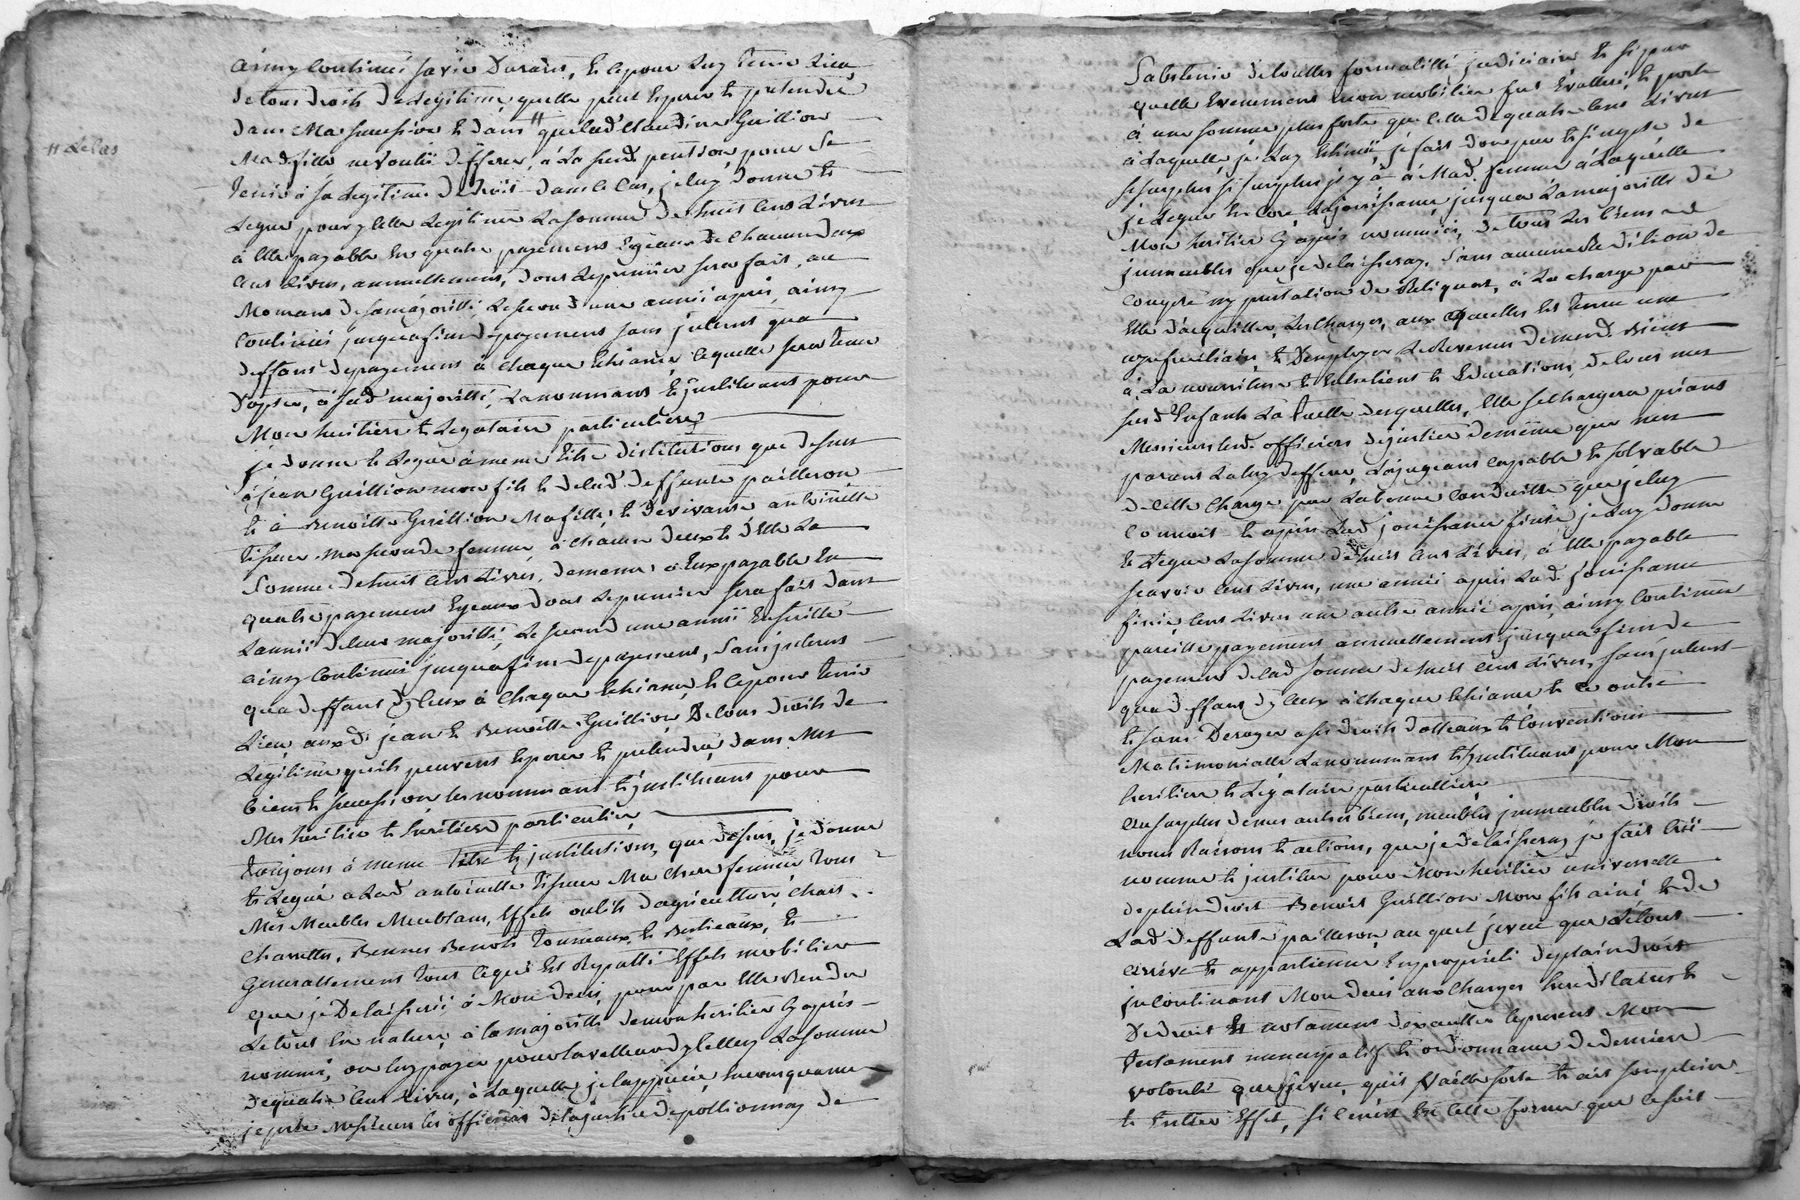 ainsy continué sa vie durant, & ce pour luy tenir lieu
de tous droits de legitime quelle peut esperer & pretendre
dans ma succession & dans " que lad. Claudine Guillion
" le cas
Mad. fille ne voulu differer, à la susd. pention, pour se
tenir à sa legitime de droit dans le cas, je luy donne &
legue pour celle legitime la somme de huit cens livres
à elle payable en quatre payements egeaux de chacun deux
cens livres, annuellement, dont le premier sera fait, au
moment de sa majorité, le second une année après, ainsy
continué jusqua fin de payement sans jnterest qua
deffaut de payement à chaque echeance, laquelle sera tenue
à sad. majorité, la nommant & jnstituant pour
mon heritiere & legataire particuliere
je donne & legue à meme titre distitutions que dessus
à jean Guillion mon fils & de lad. deffunte pailleron
& à Benoitte Guillion ma fille & de vivante antoinette
Tisseur ma seconde femme, à chacun deux & delle la
somme de huit cens livres, de meme à eux payable en
quatre payement egeaux dont le premier sera fait dans
lannée de leur majorité, le second une année ensuitte
ainsy continué jusqua fin de payement, sans jnterest
qua deffaut diceux à chaque echeance, & ce pour tenir
lieu auxd. jean & Benoitte Guillion, de tous droits de
legitime quils peuvent esperer & pretendre dans mes
biens & succession les nommant & jnstituant pour
mes heritier & heritiere particulier
toujours à meme titre & jnstitutions, que dessus, je donne
& legue à lad. antoinette Tisseur ma chere femme tous
mes meubles meublans, effets outils dagriculture, chars
charettes, Bennes Benots Tonneaux, & Bestieaux, &
generallement tous ce qui est reputté effets mobilier
que je delaisseré à mon deces, pour par elle rendre
le tout en nature, à la majorité de mon heritier cy après
nommé, ou luy payer pour la valleur dicelluy la somme
de quatre cens livres, à laquelle je lapprecie
je prie messieurs les officiers de la justice de pollionnay de
Sabstenir de toutes formalitté judiciaire & si par
quelle evenement mon mobilier fut evallué, & porté
à une somme plus forte que celle de quatre cens livres
à laquelle je lay estimé je fais don pur & simple de
se surplus si surplus jl y à à mad. femme à laquelle
je legue encore la jouissance jusqua la majorité de
mon heritier cy après nommé, de tous les biens
jmmeubles que je delaisseray, sans aucune reddition de
compte ny prestation de reliquat, à la charge par
elle dacquitter les charges, aux quelles est tenu une
usufruitiere & demployer le revenus de mesd. biens
à la nourriture & entretient & educations de tous mes
susd. enfants la tutelle desquelles, elle se chargera priant
messieurs lesd. officiers de justice de meme que mes
parens la luy defferer, la jugeant capable & solvable
de cette charge par la bonne conduitte que je luy
connoit & après lad. jouissance finie je luy donne
& legue la somme de huit cens livres, à elle payable
scavoir cens livres, une année après lad. jouissance
finie cens livres une autre année après, ainsy continuer
pareille payement annuellement jusqua fin de
payement de lad. somme de huit cens livres, sans jnterest
qua deffaut diceux à chaque echeance & ce outre
& sans deroger à ses droits dotteaux & conventions
matrimonialle la nommant & jnstituant pour mon
heritiere & legataire particuliere
au surplus de mes autres biens, meubles jmmeubles droits
noms raisons & actions, que je delaisseray je fais créé
nomme & jnstitue pour mon heritier universelle
de plein droit Benoit Guillion mon fils ainé & de
lad. deffunte pailleron, au quel je veux que le tout
arrive & appartienne en proprieté de plain droit
jncontinant mon deces aux charges hereditaires &
de droit & notament dexcutter le present mon
testament nuncupatif & ordonnance de derniere
volonté que je veux quil vaille sorte & ait son plein
& entier effet, si ce nest en cette forme que ce soit